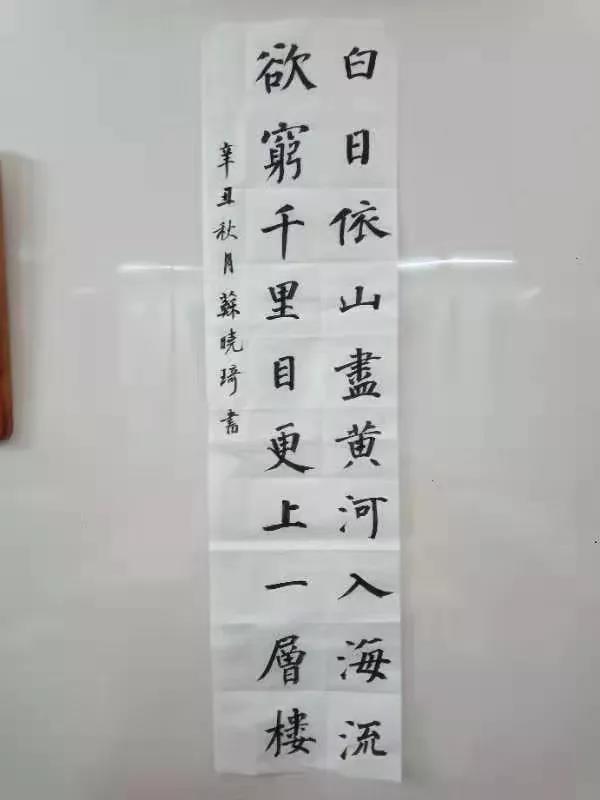 白日依山盡黄河入海流
欲窮千里目更上一層楼
辛丑秋月蘇曉琦書